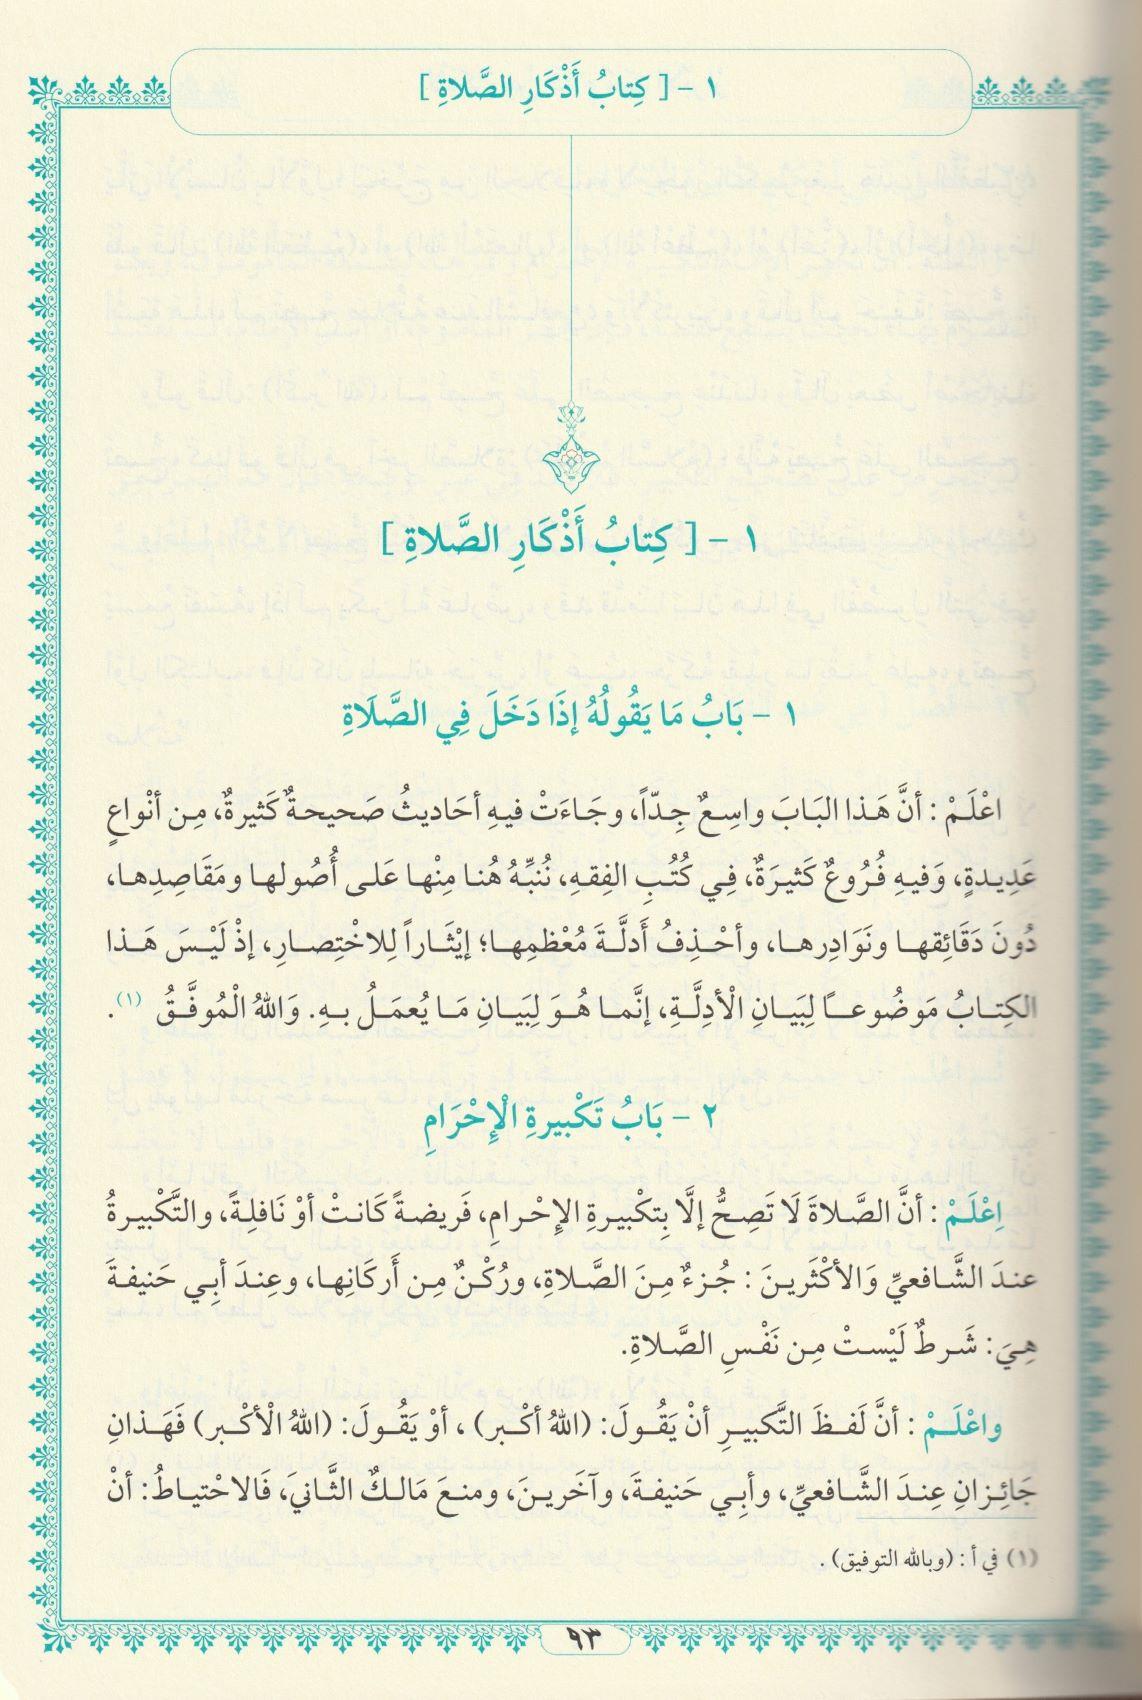 ١ - [ كِتابُ أَذْكَارِ الصَّلاةِ ]
١ - [ كِتابُ أَذْكَارِ الصَّلاةِ ]
١ - بَابُ مَا يَقُولُهُ إذَا دَخَلَ فِي الصَّلَاةِ
اعْلَمْ : أنَّ هَـذا البَابَ واسِعٌ جِدّاً، وجَاءَتْ فيهِ أحَاديثُ صَحيحةٌ كَثيرةٌ، مِن أنْواعٍ
عَدِيدةٍ، وَفيهِ فُرُوعٌ كَثيرَةٌ، فِي كُتُبِ الفِقهِ، نُنبِّهُ هُنـا مِنْهـا عَلى أُصُولهـا ومَقَاصِدِهـا،
دُونَ دَقَائِقهـا ونَوَادِرهـا، وأحْـذِفُ أَدلَّةَ مُعْظمِهـا؛ إيْثَـاراً لِلاخْتِصارِ، إذْ لَيْسَ هَـذا
الكِتابُ مَوضُوعـاً لِبَيانِ الْأدِلَّـةِ، إنَّمـا هُوَ لِبَيـانِ مَـا يُعمَـلُ بـهِ. وَاللهُ الْمُوفَّقُ (١).
٢ - بَابُ تَكْبيرةِ الْإحْرَامِ
اِعْلَمْ : أنَّ الصَّلاةَ لَا تَصِحُّ إلَّا بِتكْبيرةِ الإحْرامِ، فَريضةً كَانتْ أوْ نَافلِةً، والتَّكْبيرةُ
عندَ الشَّافعيِّ وَالأكْثَرينَ : جُزءٌ مِنَ الصَّلاةِ، ورُكْنٌ مِن أَركَانِها، وعِندَ أبِي حَنيفةَ
هِيَ: شَرطٌ لَيْستْ مِن نَفْسِ الصَّلاةِ.
واعْلَمْ : أنَّ لَفـظَ التَّكبيـرِ أنْ يَقُـولَ: (اللهُ أكْـبر) ، أوْ يَقُـولَ: (اللهُ الْأكْـبر) فَهَـذانِ
جَائِزانِ عِندَ الشَّافعيِّ، وأبِي حَنيفةَ، وآخَرينَ، ومنعَ مَالـكٌ الثَّانيَ، فَالاحْتياطُ: أنْ
(١) في أ : (وبالله التوفيق) .
٩٣